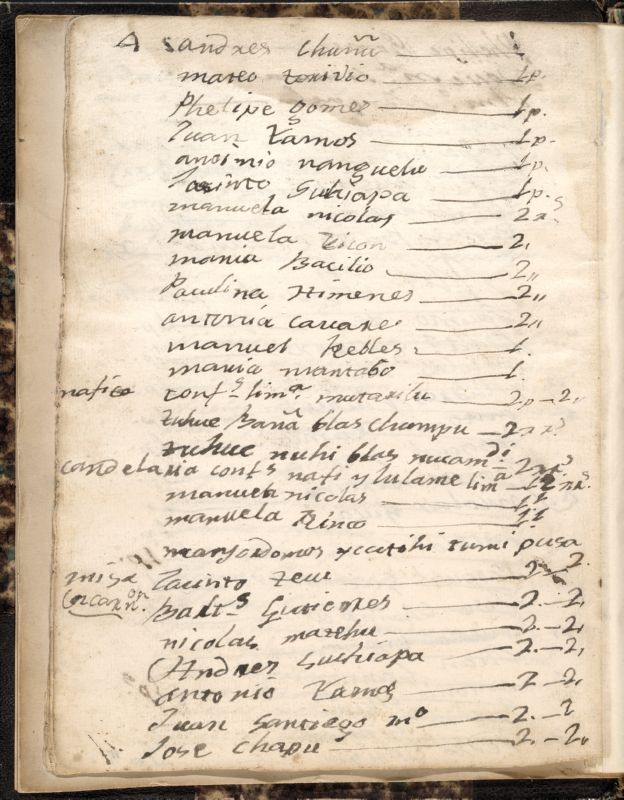 A andres chuña
mateo torivio — 1p.
Phelipe gomes — 1p.
Juan Ramos — 1p.
antonio nanguelu — 1p.
Jasinto Guhiapa — 1p.
manuela nicolas — 2 rs
manuela — 2,
maria Bacilio — 2,,
Paculina Himenes — 2,,
antonia cauane — 2,,
manuel Rebles — 1.
maria mantabo — 1.
nafico confs lima mutarilu — 2p – 2,
tuhuc Baña blas chumpu — 2 rs
tuhuc nuhi blas nucamdi
candelaria confs nafi y lulame lima — 12 rs.
manuela nicolas — 11
manuela Rinco — 11
mayordomos y cutihi tumi pusa
misa Jacinto teui — 2 – 2.
encarnon. Balts Gutierres — 2. – 2,
nicolas matehu — 2. – 2,
Andres Guhiapa — 2. – 2,
antonio Ramos — 2. – 2,
Juan Santiago mo — 2. – 2
Jose chapu — 2. – 2,